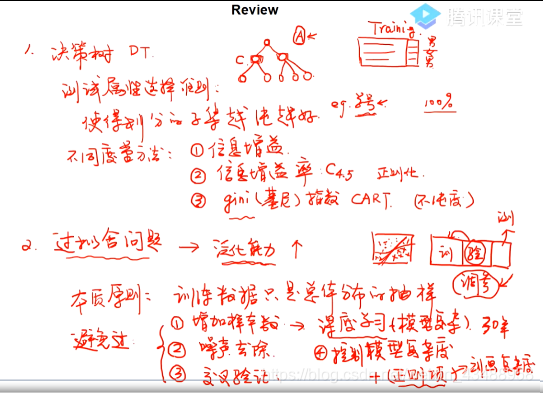 Review
腾讯课堂
1. 决策树 DT.
A
C
Training
男
女
男
测试属性选择准则:
使得划分的子集越纯越好
eg. 学号 100%
不同度量方法: ① 信息增益.
② 信息增益率 C4.5 正则化
③ gini(基尼)指数 CART (不纯度)
2. 过拟合问题 → 泛化能力 ↑
训 验 测
调参
本质原则: 训练数据只是总体分布的抽样
避免过 ① 增加样本数 → 深度学习(模型复杂) 30年
② 噪声去除. ④ 控制模型复杂度
③ 交叉验证 + 正则项 → 刻画复杂度
https://blog.csdn.net/